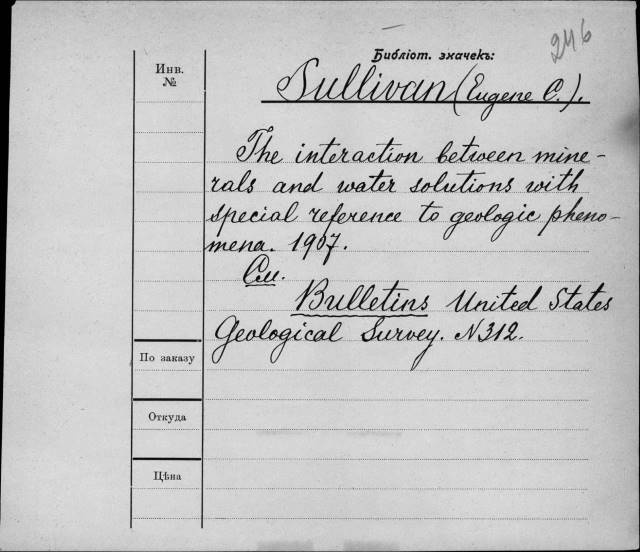 246
Библіот. значекъ:
Инв.
№
Sullivan (Eugene C.).
The interaction between mine-
rals and water solutions with
special reference to geologic pheno-
mena. 1907.
См.
Bulletins United States
Geological Survey. N 312.
По заказу
Откуда
Цѣна